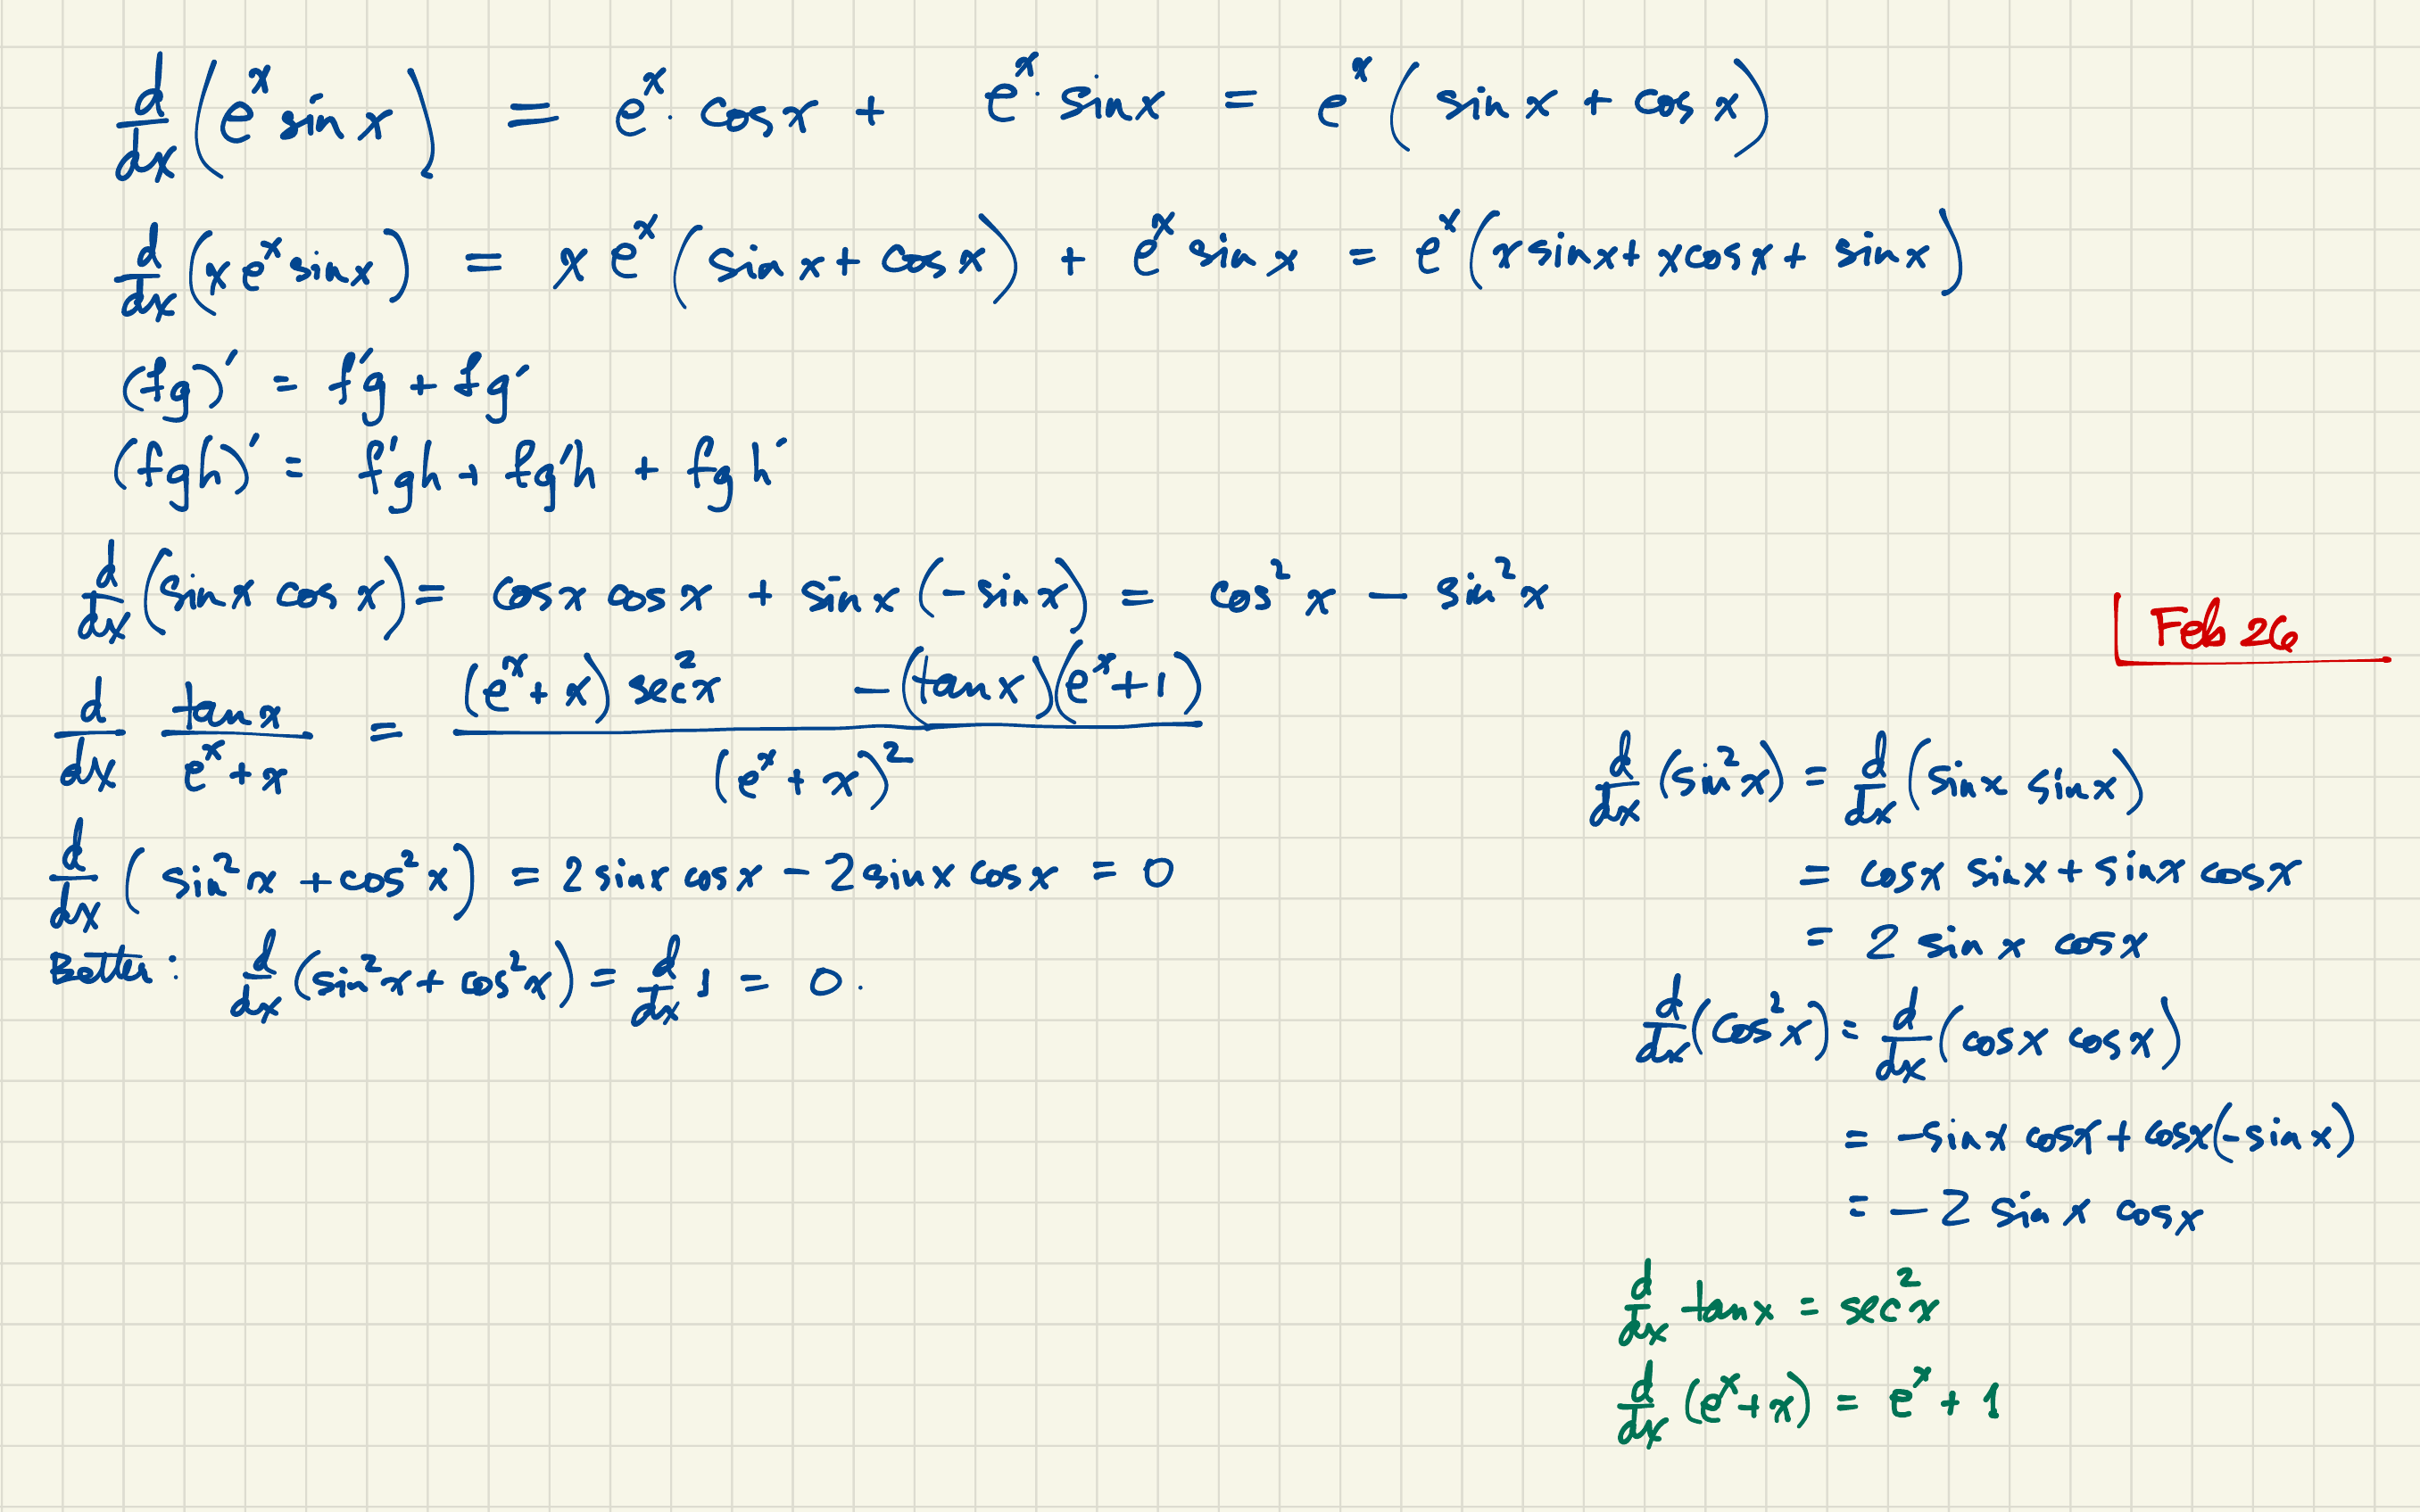 d/dx (e^x sin x) = e^x · cos x + e^x · sin x = e^x (sin x + cos x)
d/dx (x e^x sin x) = x e^x (sin x + cos x) + e^x sin x = e^x (x sin x + x cos x + sin x)
(fg)' = f'g + fg'
(fgh)' = f'gh + fg'h + fgh'
d/dx (sin x cos x) = cos x cos x + sin x (-sin x) = cos² x - sin² x
d/dx tan x / (e^x + x) = ((e^x + x) sec² x - (tan x)(e^x + 1)) / (e^x + x)²
d/dx (sin² x + cos² x) = 2 sin x cos x - 2 sin x cos x = 0
Better: d/dx (sin² x + cos² x) = d/dx 1 = 0.
Feb 26
d/dx (sin² x) = d/dx (sin x sin x)
= cos x sin x + sin x cos x
= 2 sin x cos x
d/dx (cos² x) = d/dx (cos x cos x)
= -sin x cos x + cos x (-sin x)
= -2 sin x cos x
d/dx tan x = sec² x
d/dx (e^x + x) = e^x + 1